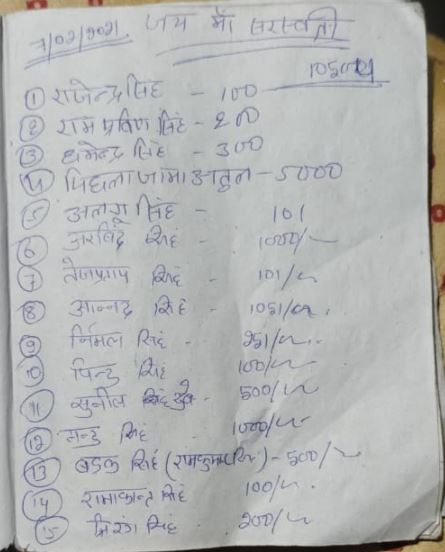 7/02/2021. जय माँ सरस्वती
① राजेन्द्र सिंह - 100
② राम प्रविण सिंह - 200
③ धर्मेन्द्र सिंह - 300
④ पिछला जामा - 5000
⑤ सिंह - 101
⑥ अरविंद सिंह 1000/-
⑦ तेजप्रताप सिंह 101/-
⑧ आनन्द सिंह - 1051/-
⑨ र्निमल सिंह - 251/-
⑩ पिन्टु सिंह 100/-
⑪ सुनील सिंह 500/-
⑫ मन्टु सिंह 1000/-
⑬ सिंह (रामकुमार सिंह) - 500/-
⑭ रामाकान्त सिंह 100/-
⑮ सिंह 200/-